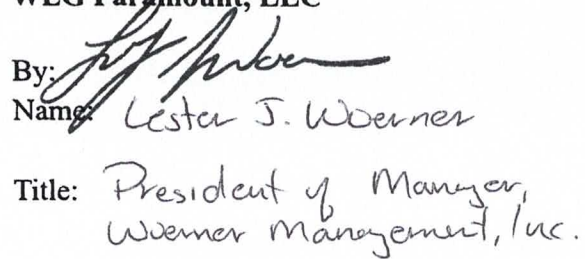 WEG Paramount, LLC
By:
Name: Lester J. Woerner
Title: President of Manager,
Woerner Management, Inc.